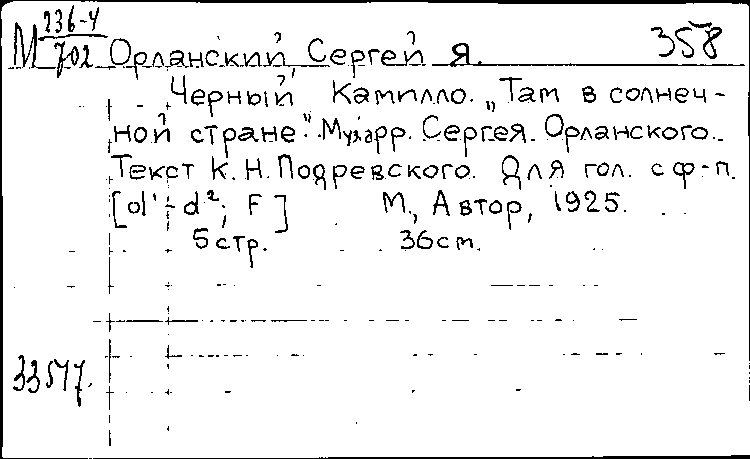 М 236-4/702 Орланский, Сергей Я. 358
Черный Камилло. „Там в солнеч-
ной стране". Муз. арр. Сергея Орланского.
Текст К. Н. Подревского. Для гол. с ф-п.
[d' - d²; F] М., Автор, 1925.
5 стр. 36 cm.
33517.